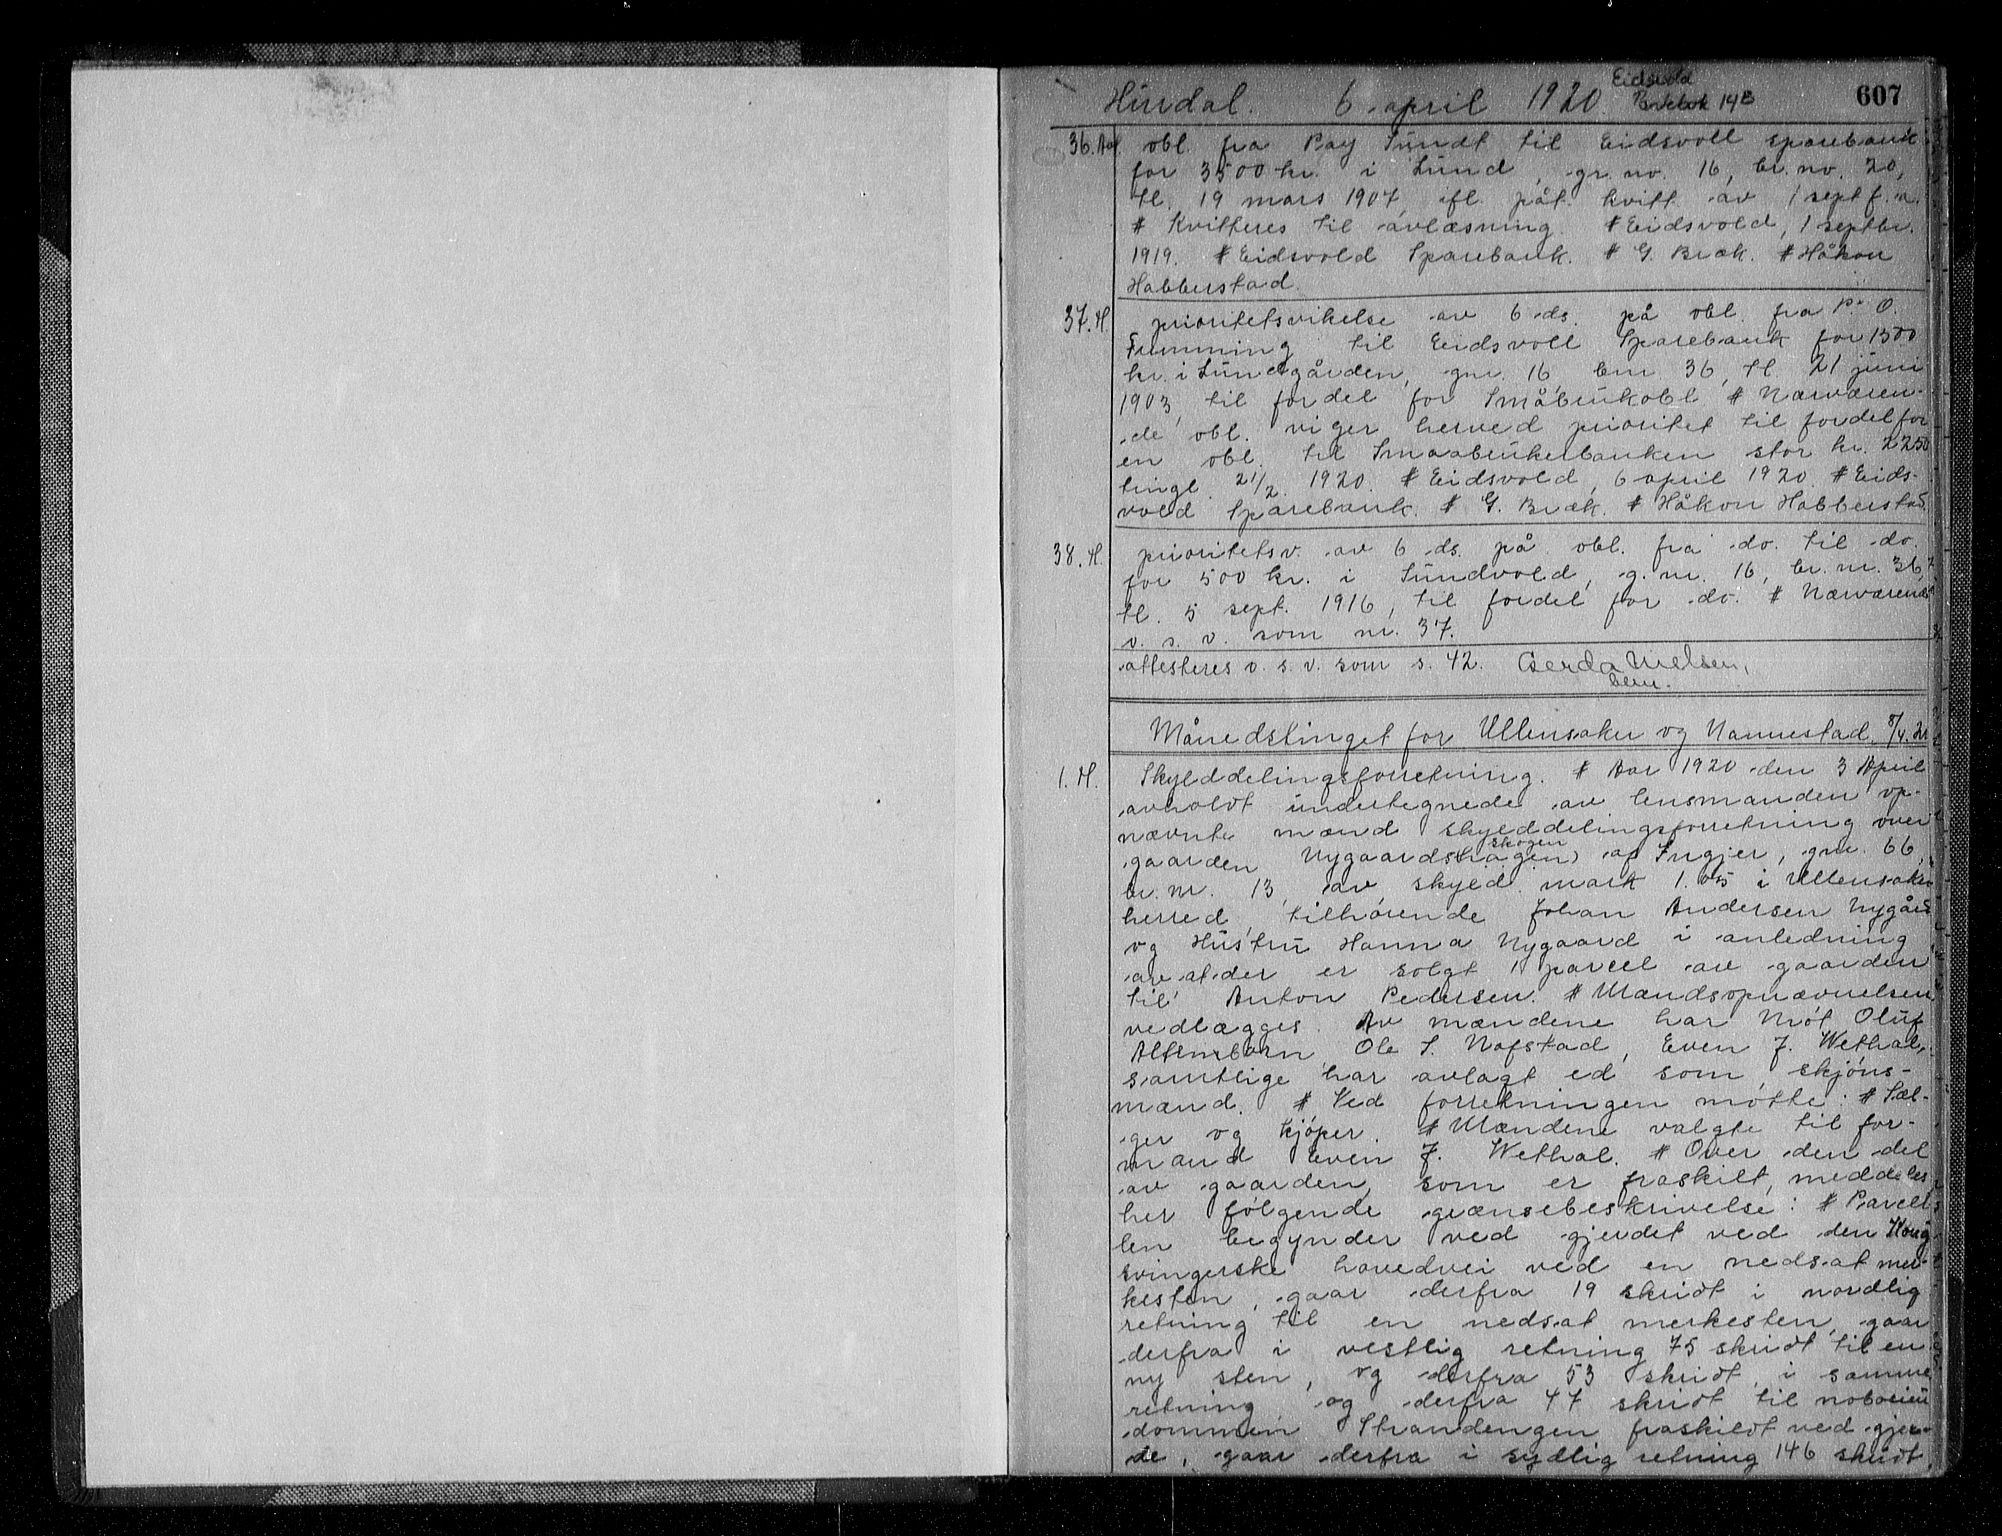 Hurdal. 6 april 1920. Eidsvold
14B 607
36. Aal. obl. fra Pay Sundt til Eidsvoll sparebank
for 3500 kr. i Lund, gr. no. 16, br. no. 20,
tl. 19 mars 1907, ifl. påt. kvitt. av 1 sept f. a.
# Kvitteres til avlæsning. # Eidsvold, 1 septbr.
1919. # Eidsvold Sparebank. # G. Bræk. # Håkon
Habberstad.
37. H. prioritetsvikelse av 6 ds. på obl. fra P. O.
til Eidsvoll Sparebank for 1500
kr. i Lundgården, gnr. 16, bnr 36, tl. 21 juni
1903, til fordel for Småbrukobl. # Nærværen-
de obl. viger herved prioritet til fordel for
en obl. til Smaabrukerbanken stor kr. 2250
tingl. 21/2. 1920. # Eidsvold, 6 april 1920. # Eids-
vold Sparebank. # G. Bræk. # Håkon Habberstad.
38. H. prioritetsv. av 6 ds. på obl. fra do. til do.
for 500 kr. i Lundvold, g. nr. 16, br. nr. 36,
tl. 5 sept. 1916, til fordel for do. # Nærværende
o. s. v. som nr. 37.
attesteres o. s. v. som s. 42. Gerda Nielsen,
bem.
Månedstinget for Ullensaker og Nannestad 8/4. 20
1. H. Skylddelingsforretning. # Aar 1920 den 3 April
avholdt undertegnede av lensmanden op-
nævnte mænd skylddelingsforretning over
skogen
gaarden Nygaardshagen) af Ingjer, gnr. 66,
br. nr. 13, av skyld mark 1.05 i Ullensaker
herred, tilhørende Johan Andersen Nygård
og Hustru Hanna Nygaard i anledning
av at der er solgt 1 parcel av gaarden
til Anton Pedersen. # Mandsopnævnelsen
vedlægges. Av mændene har møt Oluf
Ole S. Nafstad, Even J. Wethal,
samtlige har avlagt ed som skjöns-
mænd. # Ved forretningen møtte: # Sæl-
ger og kjøper. # Mændene valgte til for-
mand Even J. Wethal. # Over den del
av gaarden, som er fraskilt, meddeles
her følgende grænsebeskrivelse: # Parcel-
len begynder ved gjerdet ved den Kong-
svingerske hovedvei ved en nedsat mer-
kesten, gaar derfra 19 skridt i nordlig
retning til en nedsat merkesten, gaar
derfra i vestlig retning 75 skridt til en
ny sten, og derfra 53 skridt i samme
retning og derfra 47 skridt til naboeien-
dommen Strandengen fraskildt ved gjer-
de, gaar derfra i sydlig retning 146 skridt,